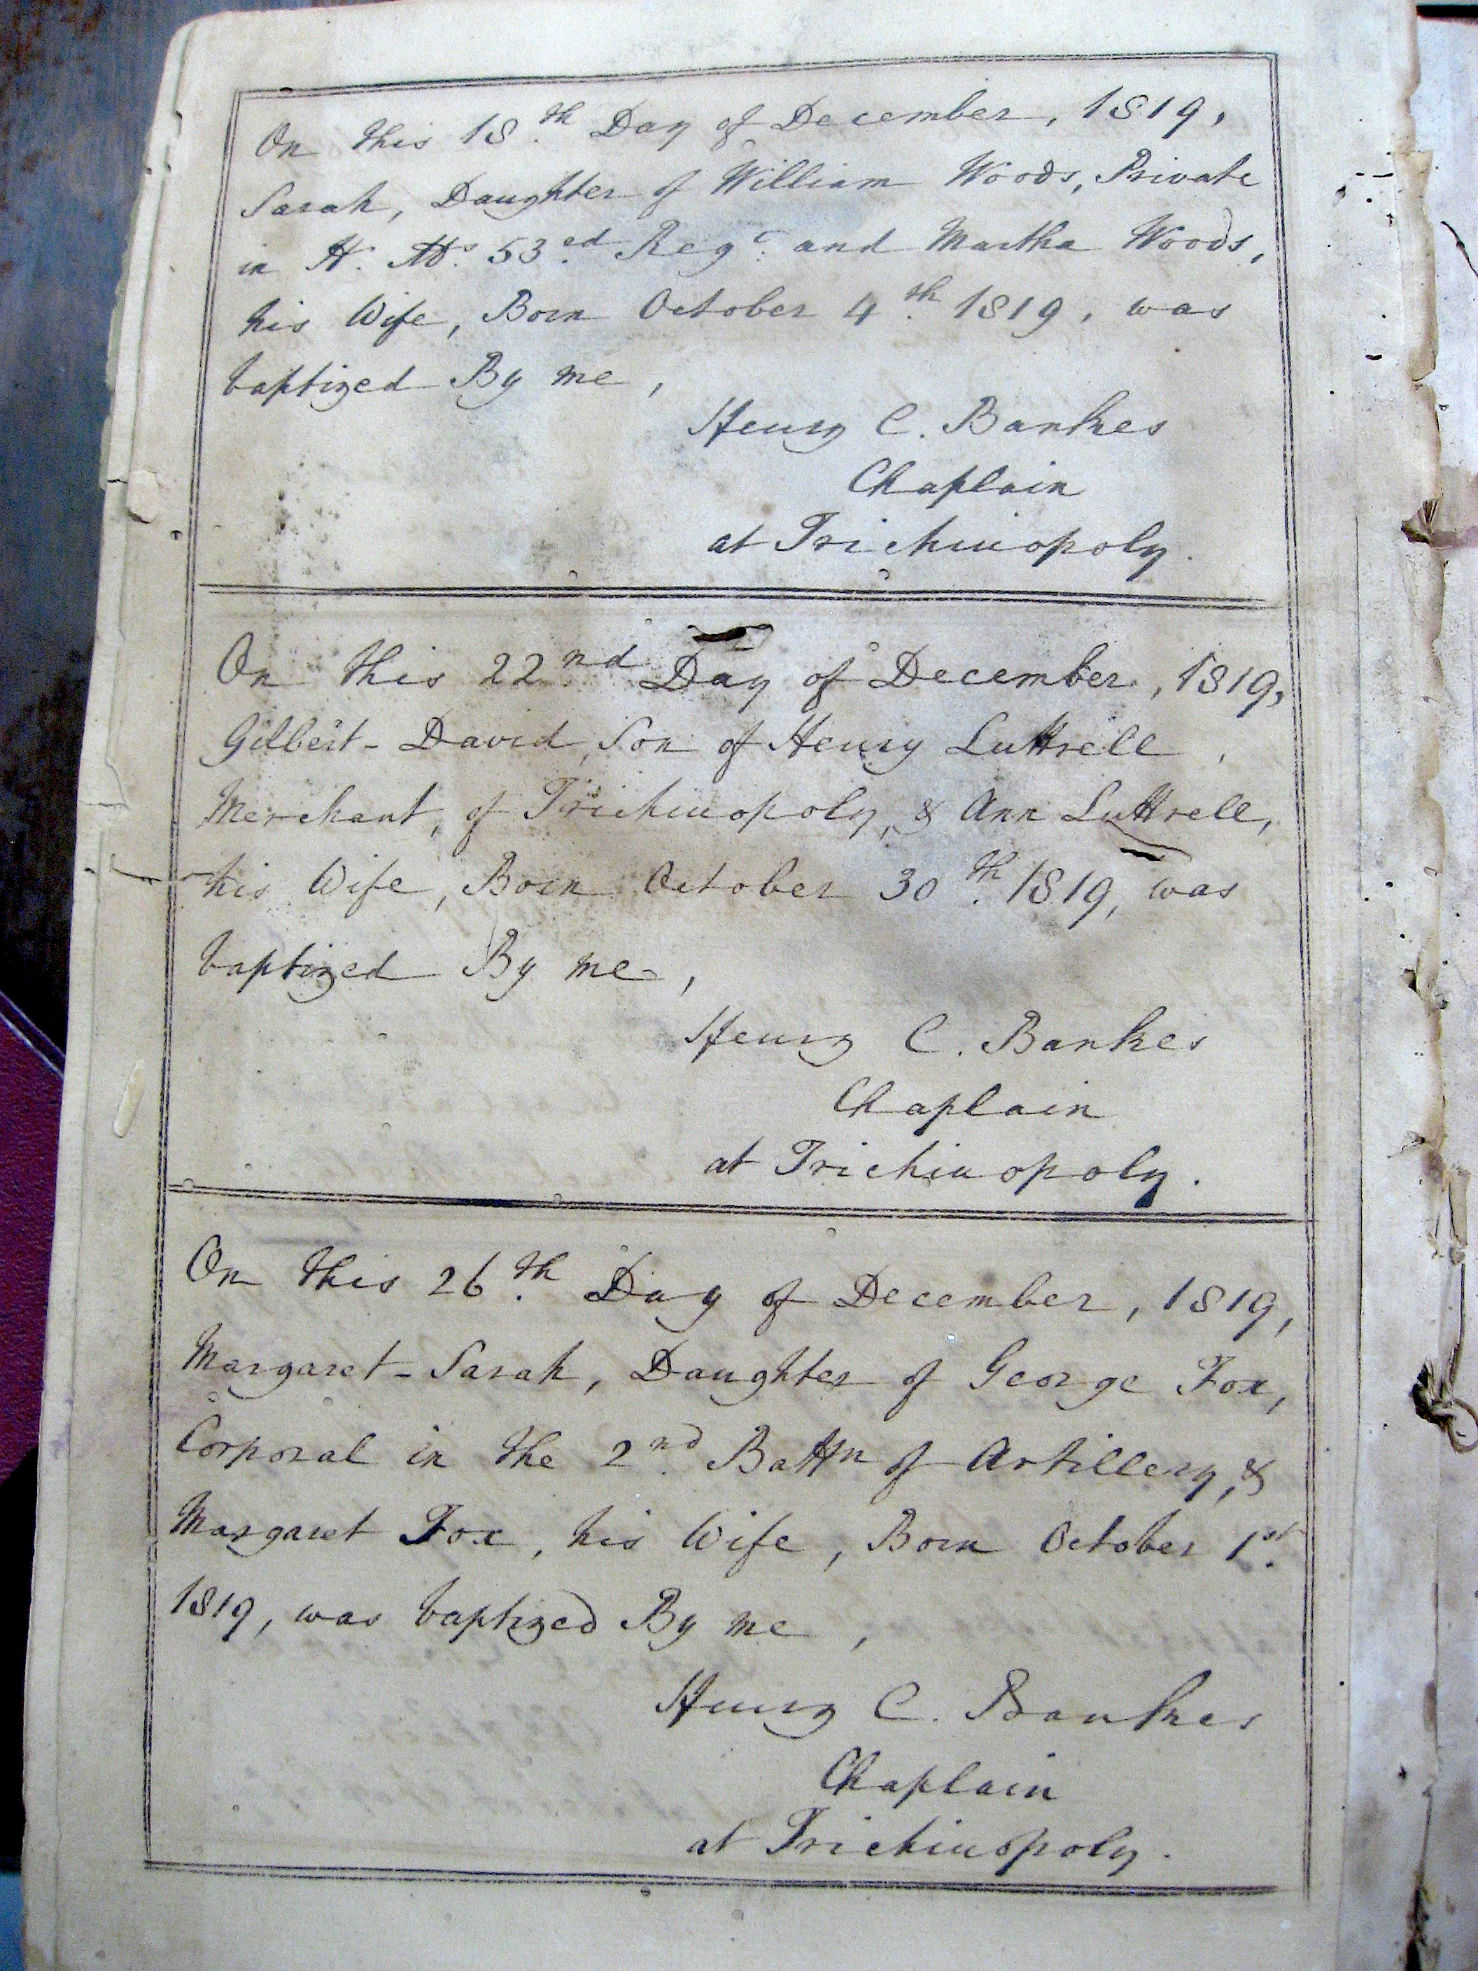 On this 18th Day of December, 1819,
Sarah, Daughter of William Woods, Private
in H. Ms. 53ed Regt. and Martha Woods,
his Wife, Born October 4th 1819, was
baptized By me,
Henry C. Bankes
Chaplain
at Trichinopoly.
On this 22nd Day of December, 1819,
Gilbert-David, Son of Henry Luttrell,
Merchant, of Trichinopoly, & Ann Luttrell,
his Wife, Born October 30th 1819, was
baptized By me,
Henry C. Bankes
Chaplain
at Trichinopoly.
On this 26th Day of December, 1819,
Margaret-Sarah, Daughter of George Fox,
Corporal in the 2nd Battn of Artillery, &
Margaret Fox, his Wife, Born October 1st.
1819, was baptized By me,
Henry C. Bankes
Chaplain
at Trichinopoly.